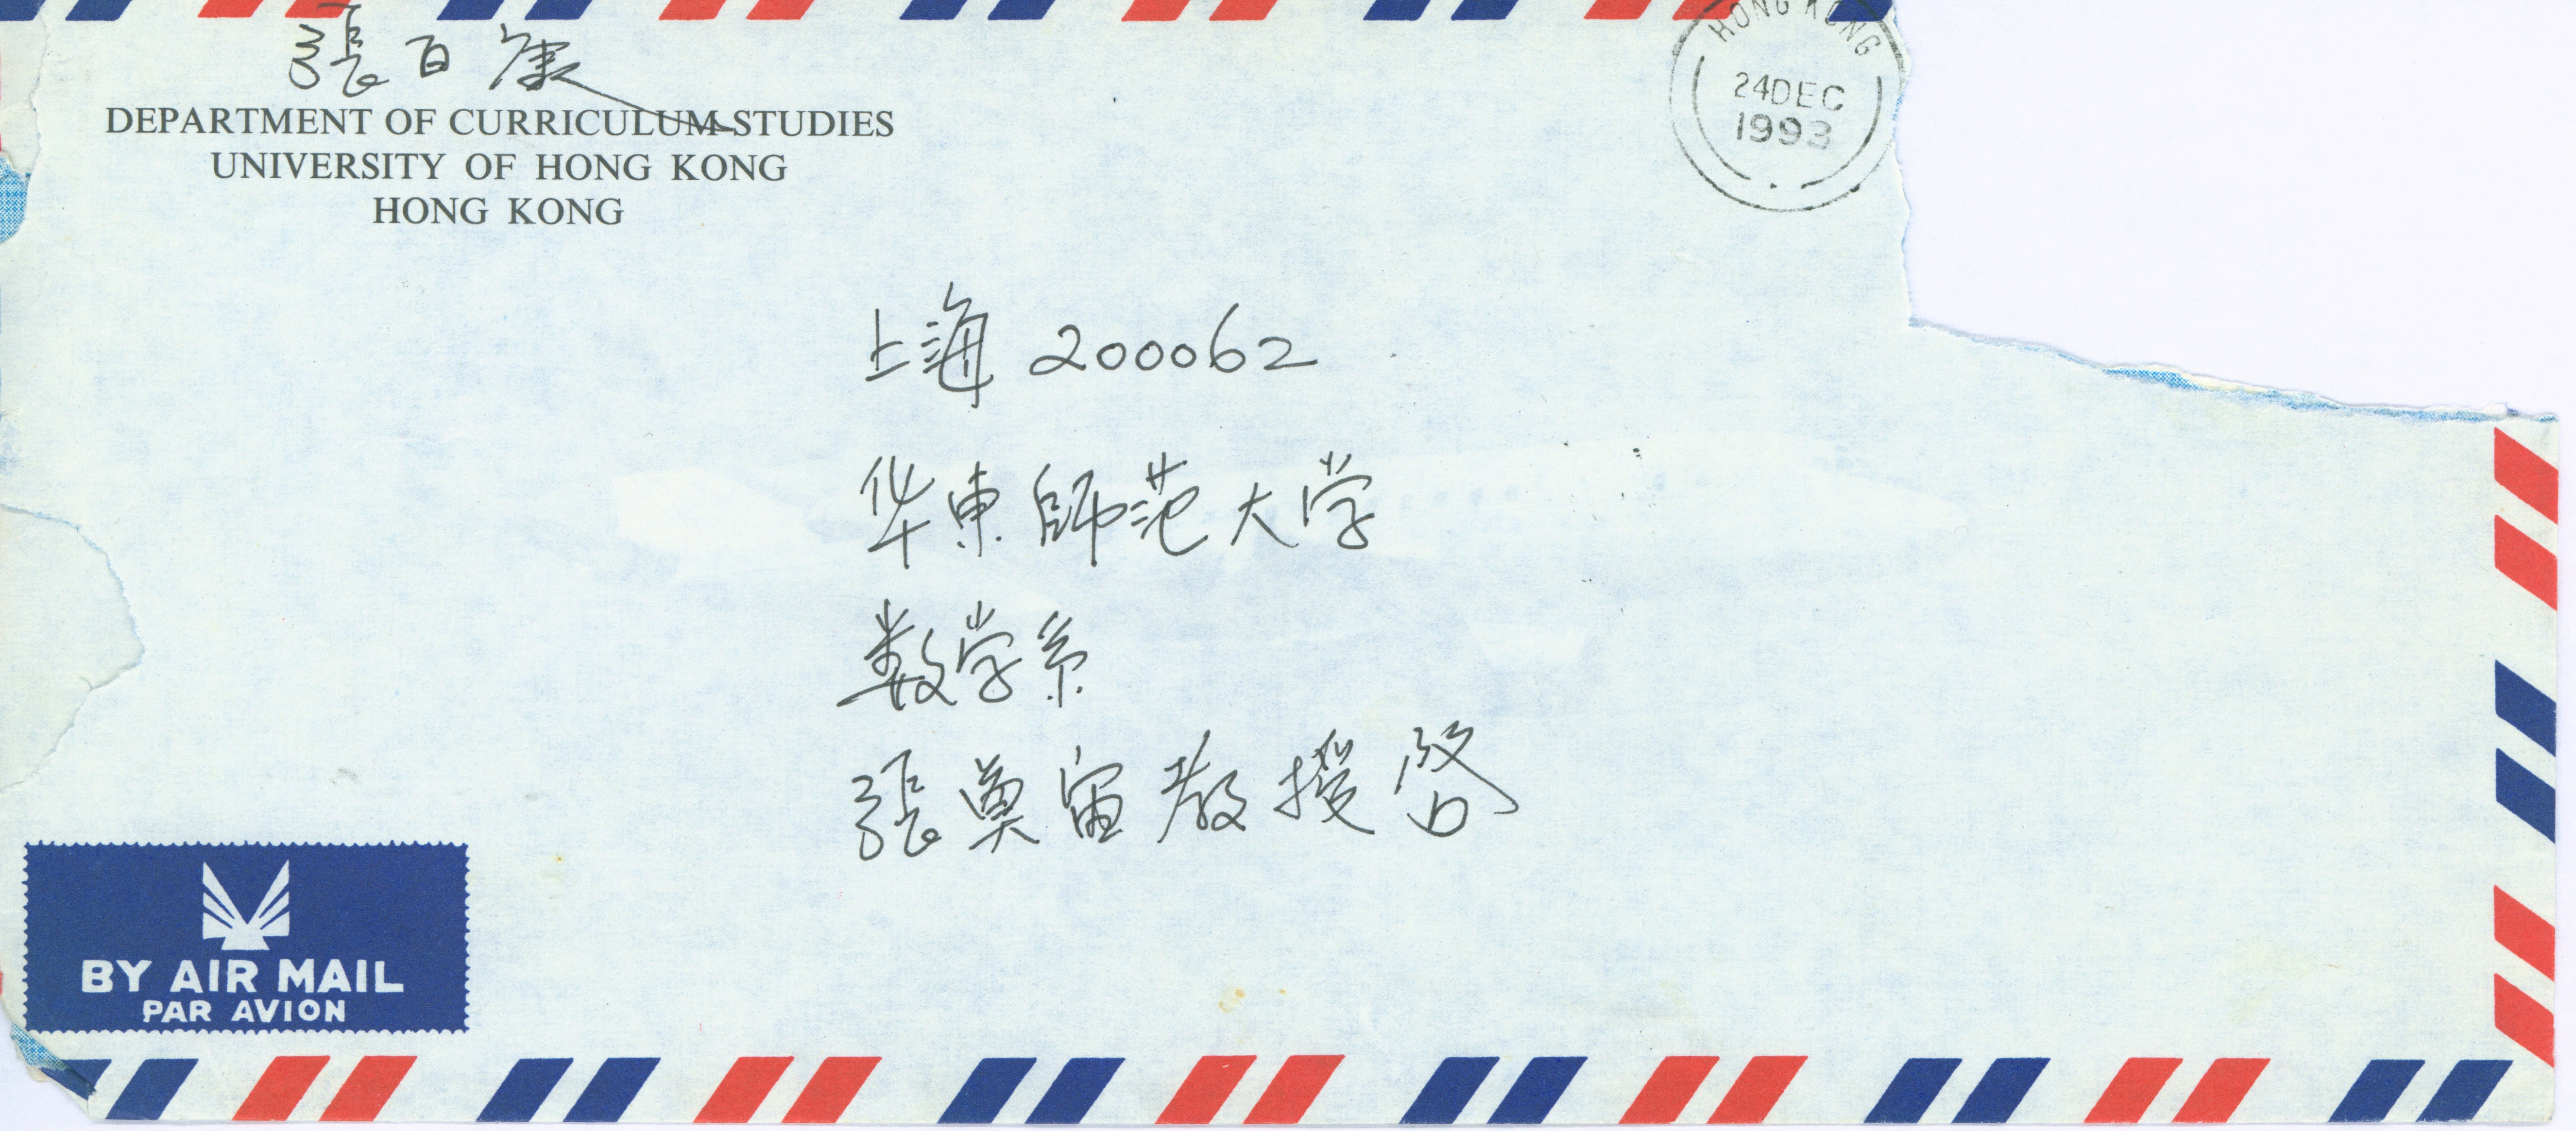 張百康
DEPARTMENT OF CURRICULUM STUDIES
UNIVERSITY OF HONG KONG
HONG KONG
HONG KONG
24DEC
1993
上海 200062
华東師范大学
数学系
張奠宙教授啓
BY AIR MAIL
PAR AVION